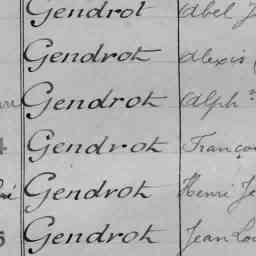 Gendrot Abel J
Gendrot Alexis
Gendrot Alph
4 Gendrot Franço
Gendrot Henri Je
Gendrot Jean Lou